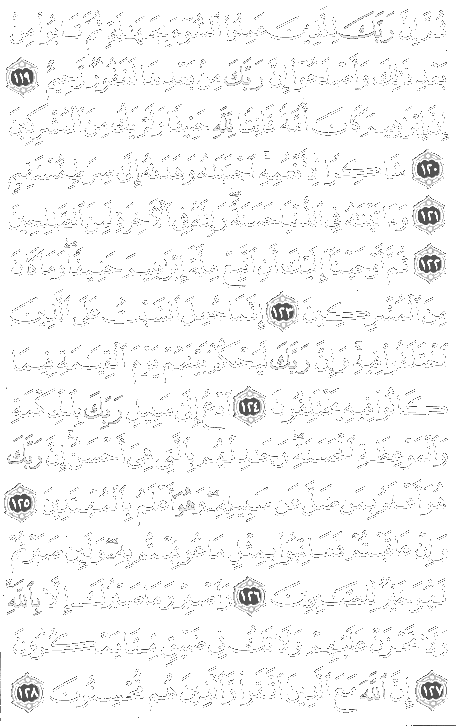 ثُمَّ إِنَّ رَبَّكَ لِلَّذِينَ عَمِلُوا۟ ٱلسُّوٓءَ بِجَهَٰلَةٍ ثُمَّ تَابُوا۟ مِنۢ
بَعْدِ ذَٰلِكَ وَأَصْلَحُوٓا۟ إِنَّ رَبَّكَ مِنۢ بَعْدِهَا لَغَفُورٌ رَّحِيمٌ ١١٩
إِنَّ إِبْرَٰهِيمَ كَانَ أُمَّةً قَانِتًا لِّلَّهِ حَنِيفًا وَلَمْ يَكُ مِنَ ٱلْمُشْرِكِينَ
١٢٠ شَاكِرًا لِّأَنْعُمِهِ ٱجْتَبَىٰهُ وَهَدَىٰهُ إِلَىٰ صِرَٰطٍ مُّسْتَقِيمٍ
١٢١ وَءَاتَيْنَٰهُ فِى ٱلدُّنْيَا حَسَنَةً وَإِنَّهُۥ فِى ٱلْءَاخِرَةِ لَمِنَ ٱلصَّٰلِحِينَ
١٢٢ ثُمَّ أَوْحَيْنَآ إِلَيْكَ أَنِ ٱتَّبِعْ مِلَّةَ إِبْرَٰهِيمَ حَنِيفًا وَمَا كَانَ
مِنَ ٱلْمُشْرِكِينَ ١٢٣ إِنَّمَا جُعِلَ ٱلسَّبْتُ عَلَى ٱلَّذِينَ
ٱخْتَلَفُوا۟ فِيهِ وَإِنَّ رَبَّكَ لَيَحْكُمُ بَيْنَهُمْ يَوْمَ ٱلْقِيَٰمَةِ فِيمَا
كَانُوا۟ فِيهِ يَخْتَلِفُونَ ١٢٤ ٱدْعُ إِلَىٰ سَبِيلِ رَبِّكَ بِٱلْحِكْمَةِ
وَٱلْمَوْعِظَةِ ٱلْحَسَنَةِ وَجَٰدِلْهُم بِٱلَّتِى هِىَ أَحْسَنُ إِنَّ رَبَّكَ
هُوَ أَعْلَمُ بِمَن ضَلَّ عَن سَبِيلِهِۦ وَهُوَ أَعْلَمُ بِٱلْمُهْتَدِينَ ١٢٥
وَإِنْ عَاقَبْتُمْ فَعَاقِبُوا۟ بِمِثْلِ مَا عُوقِبْتُم بِهِۦ وَلَئِن صَبَرْتُمْ
لَهُوَ خَيْرٌ لِّلصَّٰبِرِينَ ١٢٦ وَٱصْبِرْ وَمَا صَبْرُكَ إِلَّا بِٱللَّهِ
وَلَا تَحْزَنْ عَلَيْهِمْ وَلَا تَكُ فِى ضَيْقٍ مِّمَّا يَمْكُرُونَ
١٢٧ إِنَّ ٱللَّهَ مَعَ ٱلَّذِينَ ٱتَّقَوا۟ وَّٱلَّذِينَ هُم مُّحْسِنُونَ ١٢٨